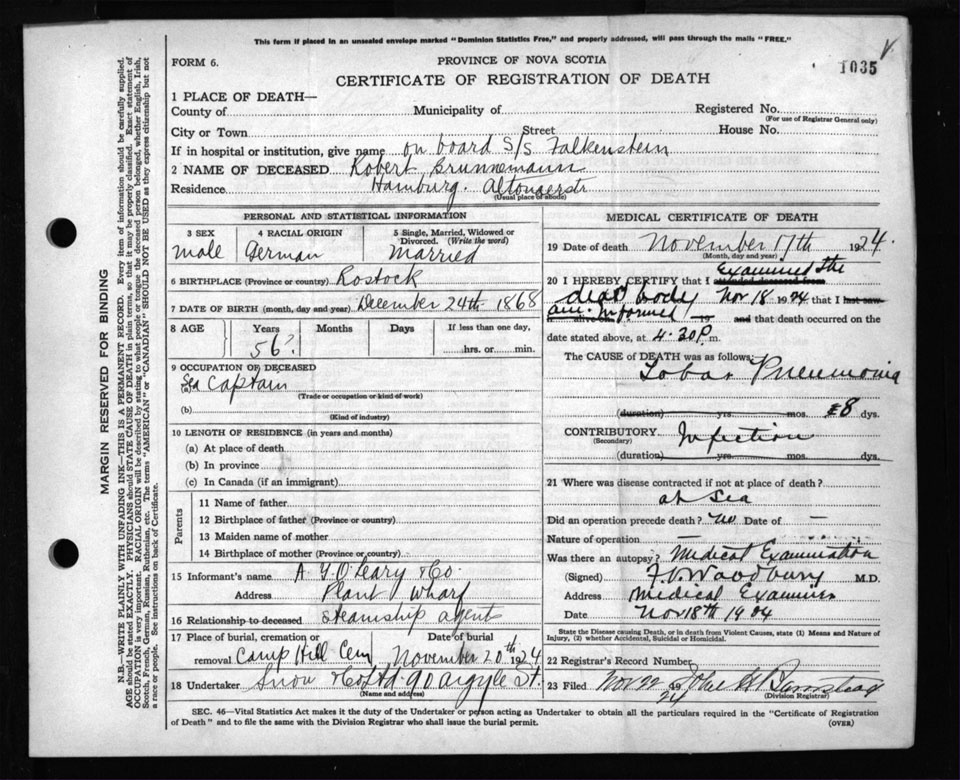 This form if placed in an unsealed envelope marked "Dominion Statistics Free," and properly addressed, will pass through the mails "FREE."
FORM 6.
PROVINCE OF NOVA SCOTIA
1035
CERTIFICATE OF REGISTRATION OF DEATH
1 PLACE OF DEATH—
County of
Municipality of
Registered No.
(For use of Registrar General only)
City or Town
Street
House No.
If in hospital or institution, give name on board S/S Falkenstein
2 NAME OF DECEASED Robert Brunnemann
Residence Hamburg. Altonaerstr
(Usual place of abode)
PERSONAL AND STATISTICAL INFORMATION
3 SEX
male
4 RACIAL ORIGIN
German
5 Single, Married, Widowed or Divorced. (Write the word)
Married
6 BIRTHPLACE (Province or country) Rostock
7 DATE OF BIRTH (month, day and year) December 24th 1868
8 AGE
Years
56?
Months
Days
If less than one day,
hrs. or min.
9 OCCUPATION OF DECEASED
(a) Sea Captain
(Trade or occupation or kind of work)
(b)
(Kind of industry)
10 LENGTH OF RESIDENCE (in years and months)
(a) At place of death
(b) In province
(c) In Canada (if an immigrant)
Parents
11 Name of father
12 Birthplace of father (Province or country)
13 Maiden name of mother
14 Birthplace of mother (Province or country)
15 Informant's name A. Y. O'Leary & Co.
Address Plant Wharf
16 Relationship to deceased Steamship agents
17 Place of burial, cremation or removal Camp Hill Cem
Date of burial
November 20th 1924
18 Undertaker Snow & Co Ltd 90 Argyle St.
(Name and address)
MEDICAL CERTIFICATE OF DEATH
19 Date of death November 17th 1924.
(Month, day and year)
20 I HEREBY CERTIFY that I attended deceased from Examined the
dead body Nov 18 1924 that I last saw
am informed 19 and that death occurred on the
date stated above, at 4.30 P. m.
The CAUSE OF DEATH was as follows:
Lobar Pneumonia
(duration) yrs. mos. 8 dys.
CONTRIBUTORY Infection
(Secondary)
(duration) yrs. mos. dys.
21 Where was disease contracted if not at place of death?
at Sea
Did an operation precede death? No Date of —
Nature of operation —
Was there an autopsy? Medical Examination
(Signed) F. V. Woodbury M.D.
Address Medical Examiner
Date Nov 18th 1924
State the Disease causing Death, or in death from Violent Causes, state (1) Means and Nature of Injury, (2) whether Accidental, Suicidal or Homicidal.
22 Registrar's Record Number
23 Filed Nov 22 1924 John H Barnstead
(Division Registrar)
SEC. 46—Vital Statistics Act makes it the duty of the Undertaker or person acting as Undertaker to obtain all the particulars required in the "Certificate of Registration
of Death" and to file the same with the Division Registrar who shall issue the burial permit.
(OVER)
MARGIN RESERVED FOR BINDING
N.B.—WRITE PLAINLY WITH UNFADING INK—THIS IS A PERMANENT RECORD. Every item of information should be carefully supplied.
AGE should be stated EXACTLY. PHYSICIANS should STATE CAUSE OF DEATH in plain terms, so that it may be properly classified. Exact statement of
OCCUPATION is very important. RACIAL ORIGIN will be described by stating to what people or tongue the deceased person belonged, whether English, Irish,
Scotch, French, German, Russian, Ruthenian, etc. The terms "AMERICAN" or "CANADIAN" SHOULD NOT BE USED as they express citizenship but not
a race or people. See instructions on back of Certificate.